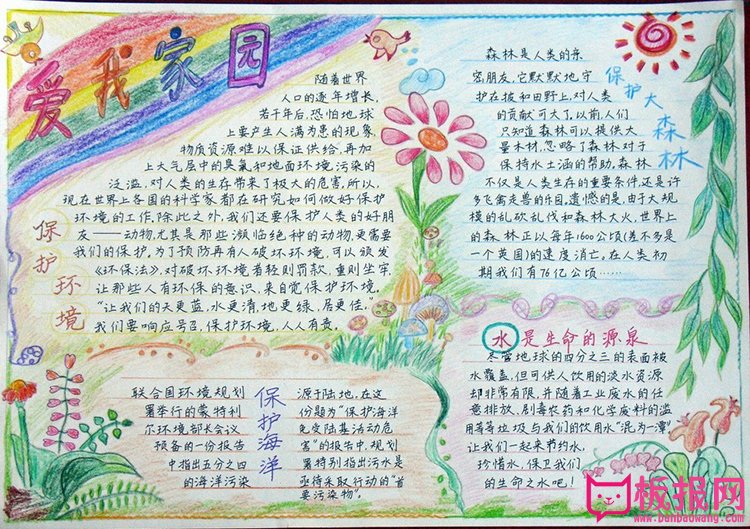 爱我家园
随着世界
人口的逐年增长,
若干年后,恐怕地球
上要产生人满为患的现象,
物质资源难以保证供给,再加
上大气层中的臭氧和地面环境污染的
泛滥,对人类的生存带来了极大的危害,所以,
现在世界上各国的科学家都在研究如何做好保护
环境的工作,除此之外,我们还要保护人类的好朋
友——动物,尤其是那些濒临绝种的动物,更需要
我们的保护,为了预防再有人破坏环境,可以颁发
《环保法》,对破坏环境者轻则罚款,重则坐牢,
让那些人有环保的意识,来自觉保护环境,
“让我们的天更蓝,水更清,地更绿,居更佳。”
我们要响应号召,保护环境,人人有责。
保护环境
森林是人类的亲
密朋友,它默默地守
护在坡和田野上,对人类
的贡献可大了,以前,人们
只知道森林可以提供大
量木材,忽略了森林对于
保持水土涵的帮助,森林
不仅是人类生存的重要条件,还是许
多飞禽走兽的乐园,遗憾的是,由于大规
模的乱砍乱伐和森林大火,世界上
的森林正以每年1600公顷(差不多是
一个英国)的速度消亡,在人类初
期我们有76亿公顷……
保护大森林
联合国环境规划
署举行的蒙特利
尔环境部长会议
预备的一份报告
中指出五分之四
的海洋污染
保护海洋
源于陆地,在这
份题为“保护海洋
免受陆基活动危
害”的报告中,规划
署特别指出污水是
亟待采取行动的“首
要污染物”。
水是生命的源泉
尽管地球的四分之三的表面被
水覆盖,但可供人饮用的淡水资源
却非常有限,并随着工业废水的任
意排放,剧毒农药和化学废料的滥
用等等垃圾与我们的饮用水“混为一潭”
让我们一起来节约水,
珍惜水,保卫我们
的生命之水吧!
板报网
www.banbaowang.com